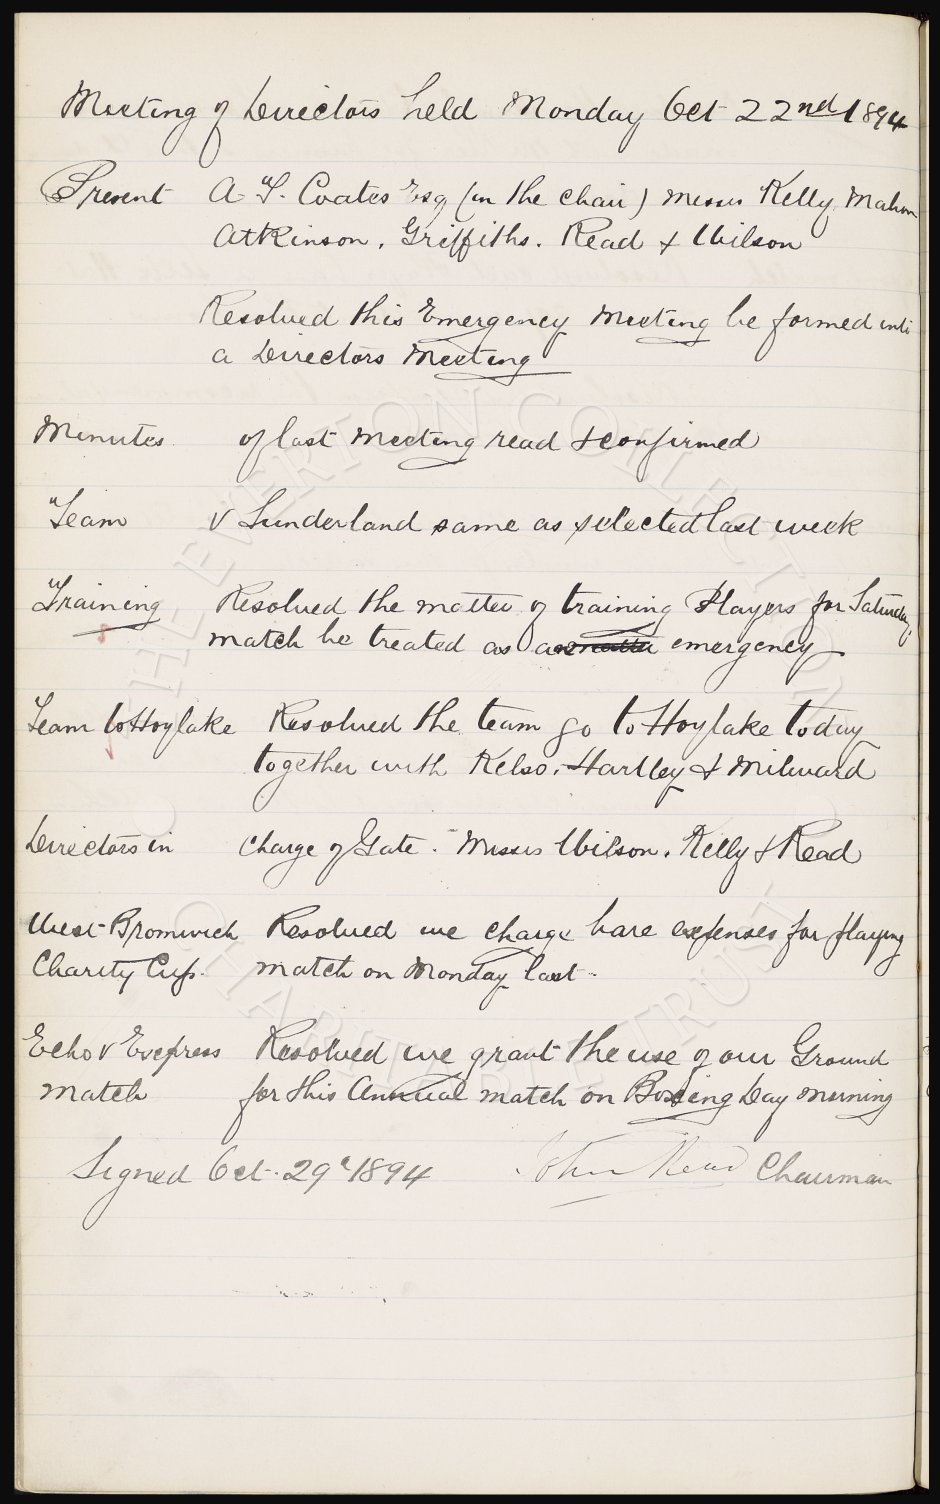 Meeting of Directors held Monday Oct 22nd 1894
Present A T. Coates Esq (in the chair) Messrs Kelly. Mahon
Atkinson. Griffiths. Read & Wilson
Resolved this Emergency Meeting be formed into
a Directors Meeting
Minutes of last meeting read & confirmed
Team v Sunderland same as selected last week
Training Resolved the matter of training Players for Saturday
match be treated as emergency
Team to Hoylake Resolved the team go to Hoylake today
together with Kelso. Hartley & Milward
Directors in charge of Gate. Messrs Wilson. Kelly & Read
West Bromwich Resolved we charge bare expenses for playing
Charity Cup. match on Monday last.
Echo v Express Resolved we grant the use of our Ground
match for this Annual match on Boxing Day morning
Signed Oct. 29th 1894 John Read Chairman
THE EVERTON COLLECTION
CHARITABLE TRUST